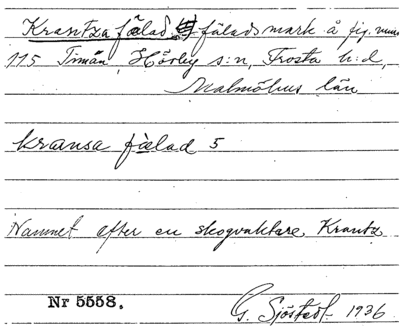 Krantza fälad, fäladsmark å fig. num
115 Timan, Hörby s:n, Frosta h:d,
Malmöhus län
kransa fälad 5
Namnet efter en skogvaktare, Krantz
Nr 5558.
G. Sjöstedt 1936